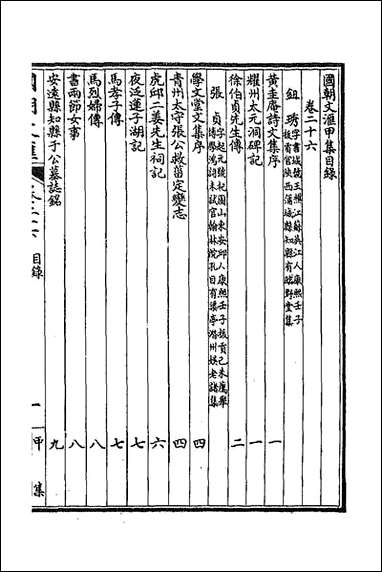 國朝文滙甲集目錄
卷二十六
鈕 琇字書城號玉樵江蘇吳江人康熙壬子
拔貢官陝西蒲城縣知縣有臨野堂集
黃圭庵詩文集序 一
耀州太元洞碑記 一
徐伯貞先生傳 二
張 貞字起元號杞園山東安邱人康熙壬子拔貢己未薦舉
博學鴻詞未試官翰林院孔目有渠亭潛州娛老諸集
學文堂文集序 四
青州太守張公救菑定變志 四
虎邱二姜先生祠記 六
夜泛蓮子湖記 七
馬孝子傳 七
馬烈婦傳 八
書兩節女事 八
安遠縣知縣于公墓誌銘 九
國朝文滙 卷二十六 目錄 一 甲集